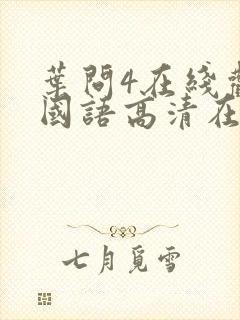 葉問4在綫
國語高清在
七月覓雪